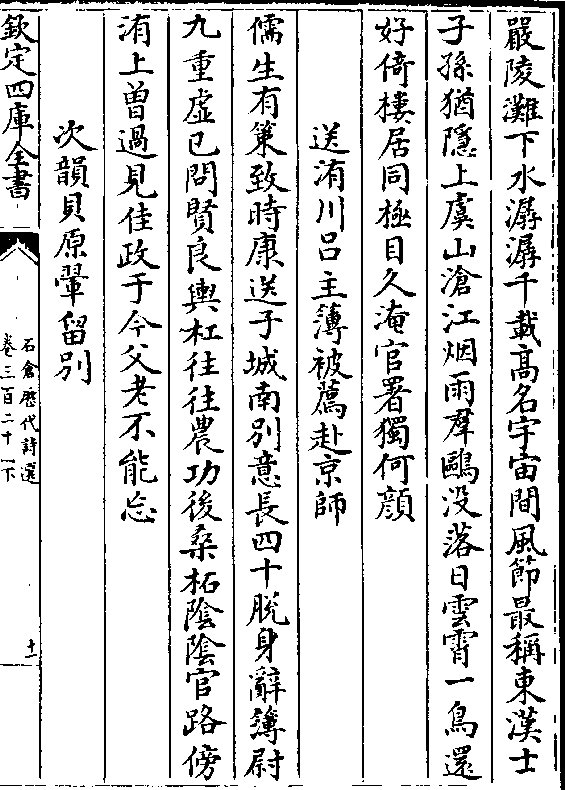 嚴陵灘下水潺潺千載高名宇宙間風節最稱東漢士
子孫猶隱上虞山滄江烟雨羣鷗没落日雲霄一鳥還
好倚樓居同極目久淹官署獨何顔
送洧川呂主簿被薦赴京師
儒生有策致時康送子城南別意長四十脫身辭簿尉
九重虚已問賢良輿杠往往農功後桑柘陰陰官路傍
洧上曾過見佳政于今父老不能忘
次韻貝原翬留別
欽定四庫全書
石倉歷代詩選
卷三百二十一下
十一